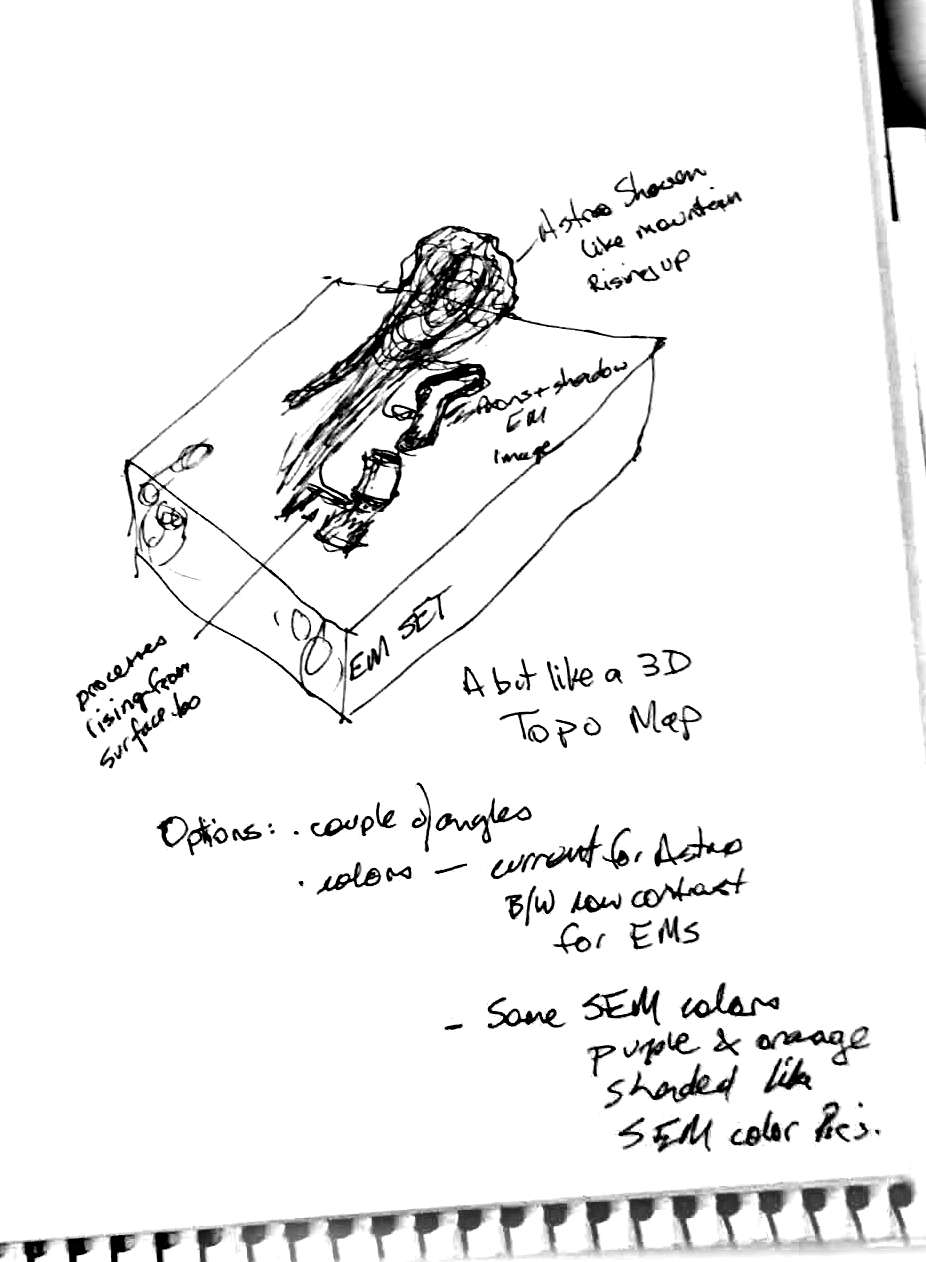 Astro Shown
like mountain
Rising up
+ shadow
EM
image
EM SET
processes
rising from
surface too
A bit like a 3D
Topo Map
Options: . couple of angles
. colors — current for Astro
B/W low contrast
for EMs
- Same SEM colors
purple & orange
shaded like
SEM color Pics.